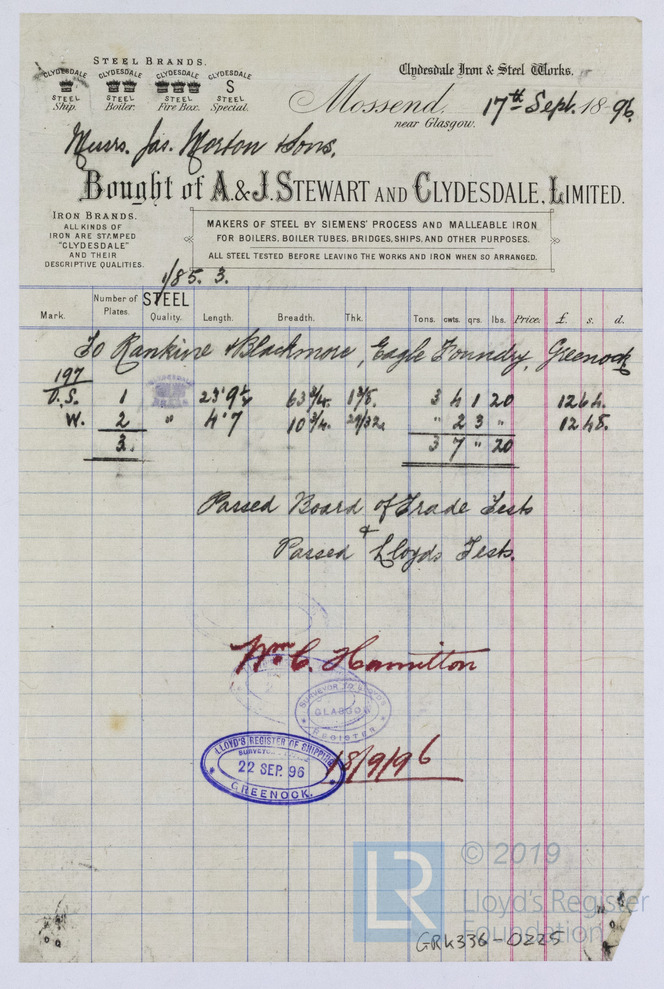 STEEL BRANDS.
CLYDESDALE CLYDESDALE CLYDESDALE CLYDESDALE
S
STEEL STEEL STEEL STEEL
Ship. Boiler. Fire Box. Special.
Clydesdale Iron & Steel Works.
Mossend, 17th Sept. 1896.
near Glasgow.
Messrs. Jas. Morton & Sons.
Bought of A. & J. STEWART AND CLYDESDALE, LIMITED.
IRON BRANDS.
ALL KINDS OF
IRON ARE STAMPED
"CLYDESDALE"
AND THEIR
DESCRIPTIVE QUALITIES.
MAKERS OF STEEL BY SIEMENS' PROCESS AND MALLEABLE IRON
FOR BOILERS, BOILER TUBES, BRIDGES, SHIPS, AND OTHER PURPOSES.
ALL STEEL TESTED BEFORE LEAVING THE WORKS AND IRON WHEN SO ARRANGED.
1/85. 3.
Mark. Number of Plates. STEEL Quality. Length. Breadth. Thk. Tons. cwts. qrs. lbs. Price. £. s. d.
To Rankine & Blackmore, Eagle Foundry, Greenock
197
U.S. 1 63 3/4. 3 4 1 20 1264.
W. 2 " 4' 7 10 3/4. 29/32 " 2 3 " 1248.
3. 3 7 " 20
Passed Board of Trade Tests
&
Passed Lloyds Tests.
Wm. C. Hamilton
SURVEYOR TO LLOYDS
GLASGOW
REGISTER
18/9/96
LLOYD'S REGISTER OF SHIPPING
22 SEP. 96
GREENOCK.
LR
© 2019
Lloyd's Register
Foundation
GRK336-0225